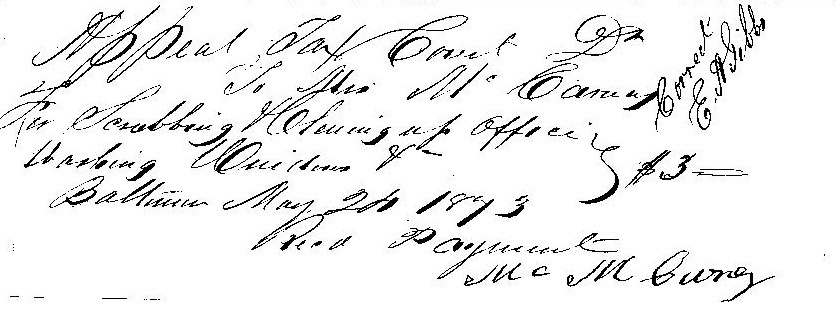 Appeal Tax Court Dr
To Mrs Mc
For Scrubbing & Clening up office
Washing Windows &c
$3—
Baltimore May 24 1873
Recd Payment
Mc M
Correct
E. A. Gibbs